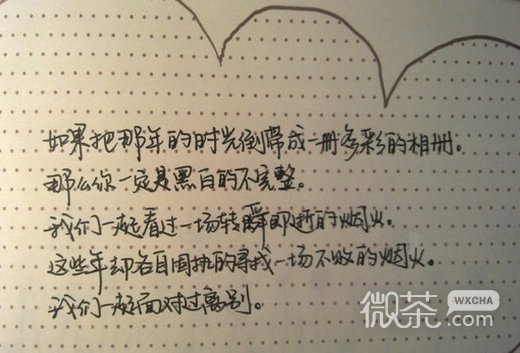 如果把那年的时光倒带成一册多彩的相册。
那么你一定是黑白的不完整。
我们一起看过一场转瞬即逝的烟火。
这些年却各自固执的寻找一场不败的烟火。
我们一起面对过离别。
微茶 WXCHA
.COM